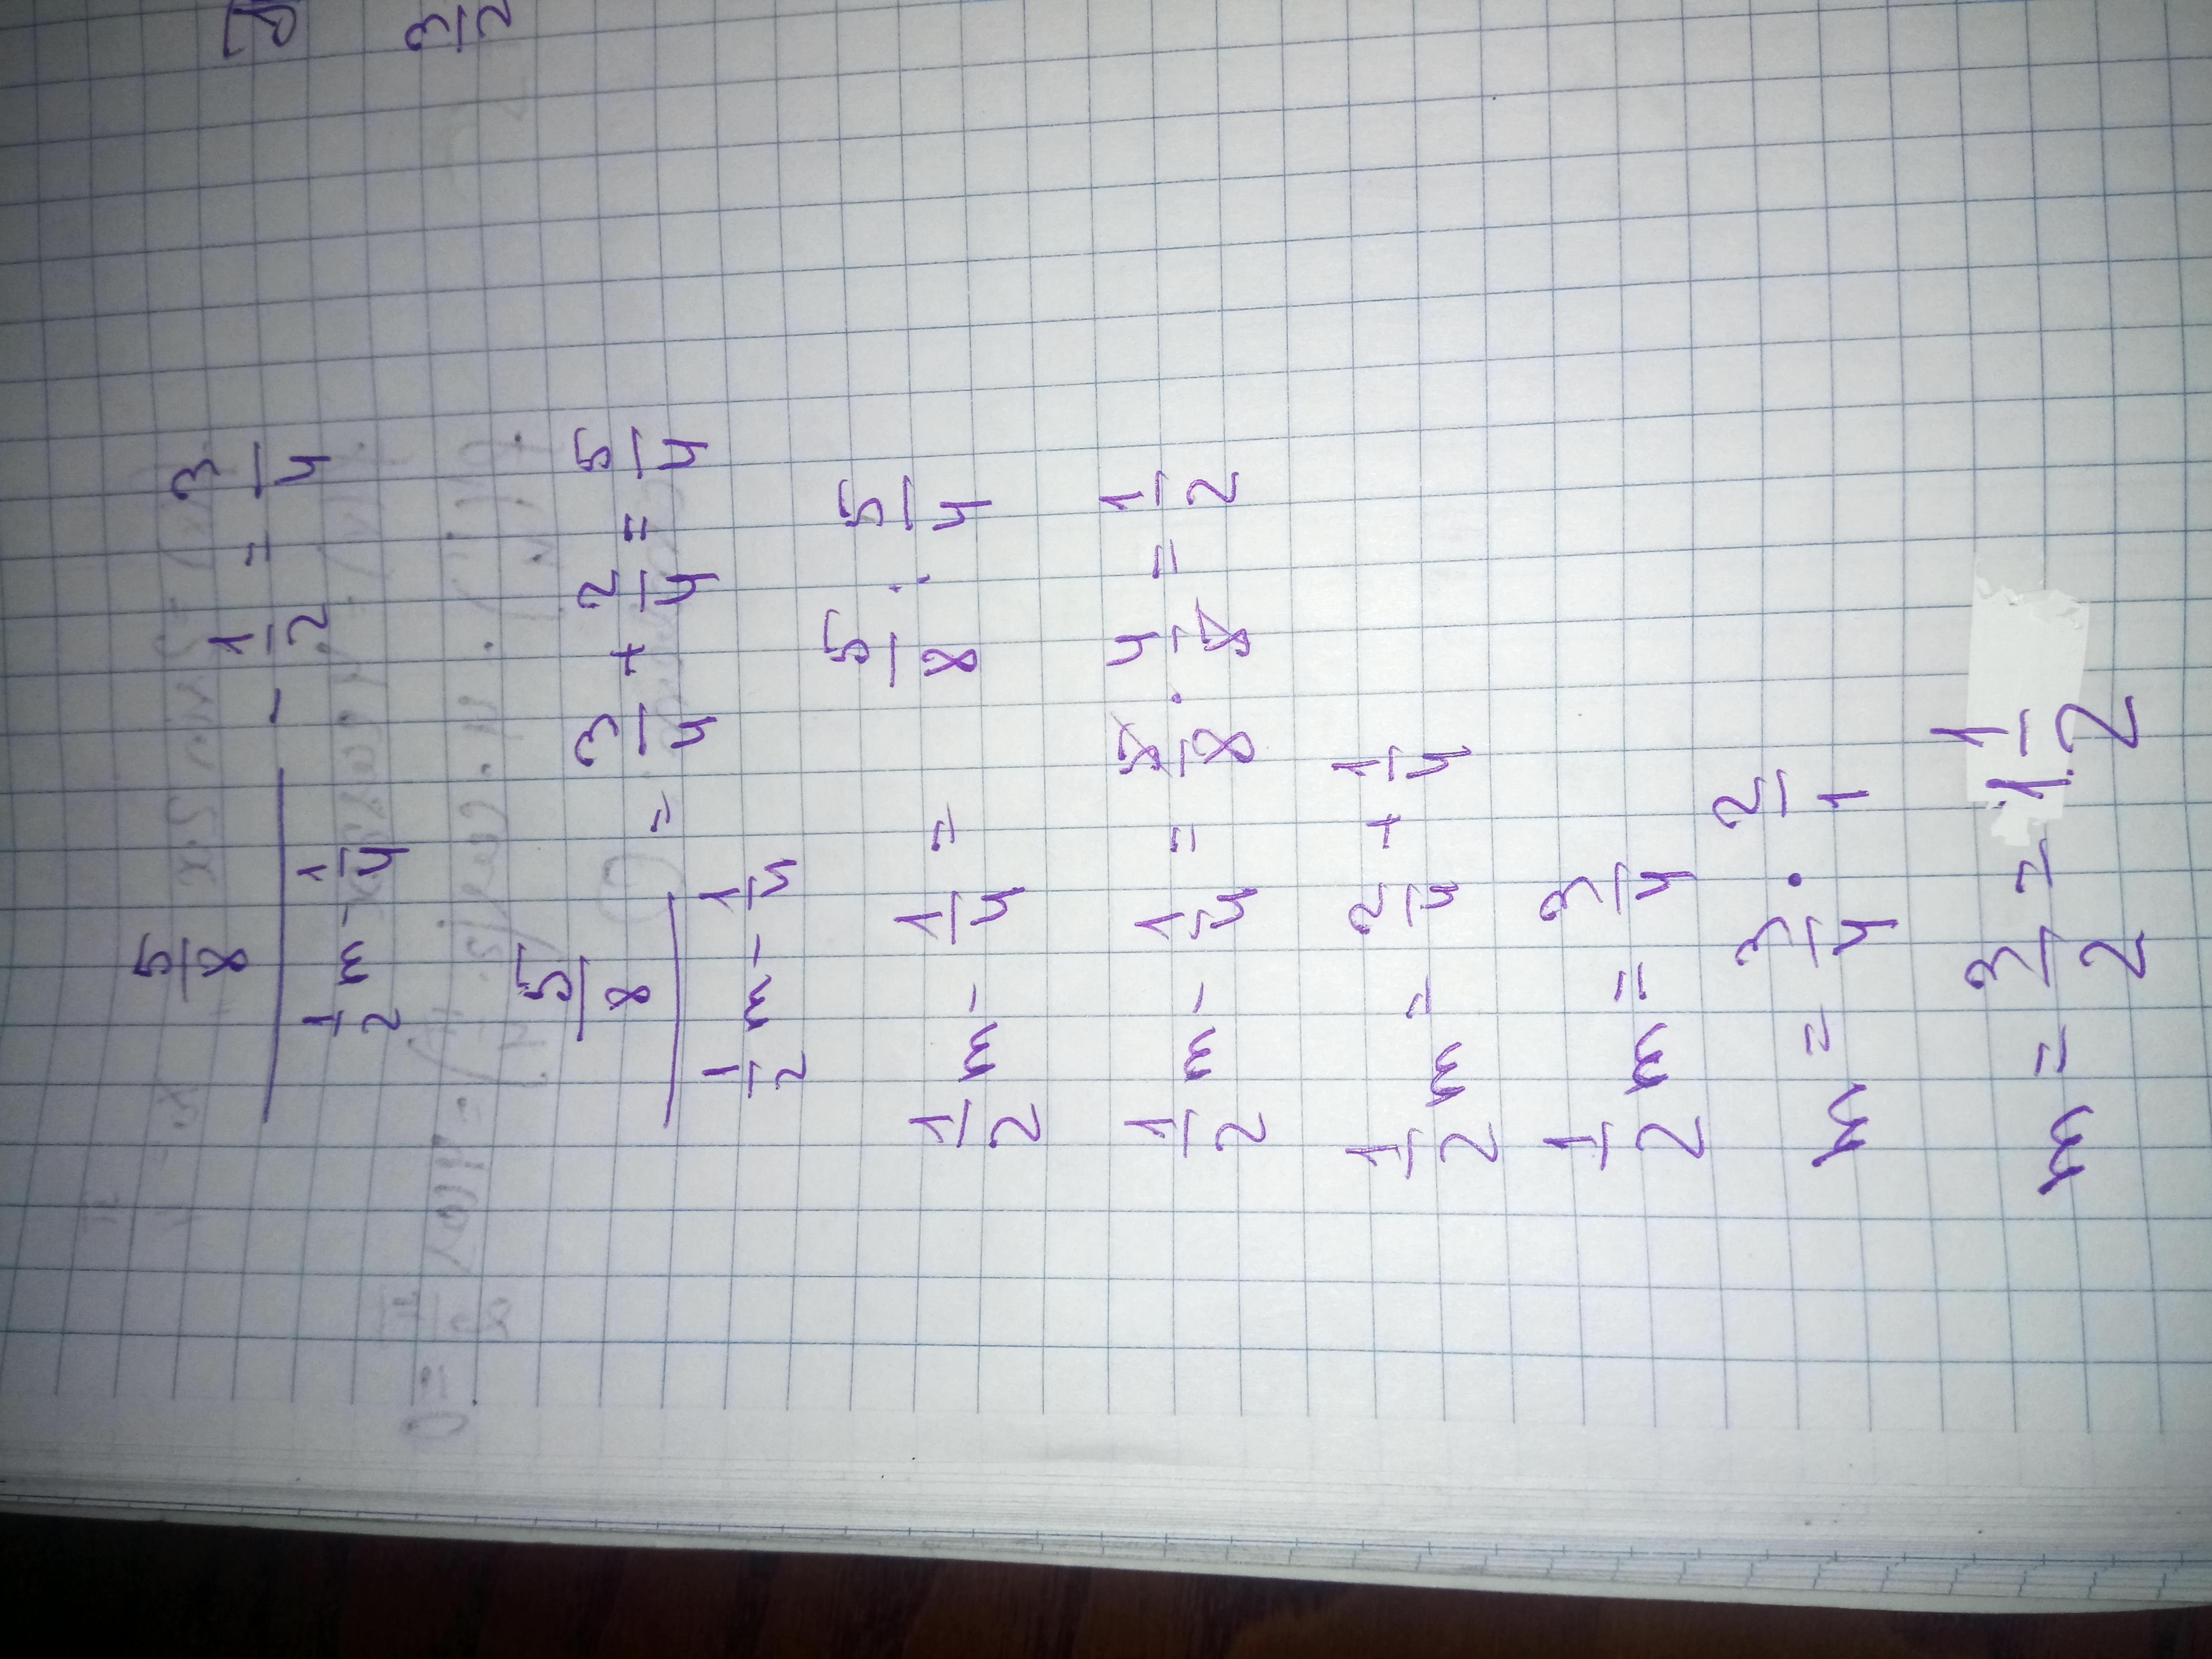 5/8 / (1/2 m - 1/4) - 1/2 = 3/4
5/8 / (1/2 m - 1/4) = 3/4 + 2/4 = 5/4
1/2 m - 1/4 = 5/8 : 5/4
1/2 m - 1/4 = 5/8 · 4/5 = 1/2
1/2 m = 2/4 + 1/4
1/2 m = 3/4
m = 3/4 · 2/1
m = 3/2 = 1 1/2
3/2